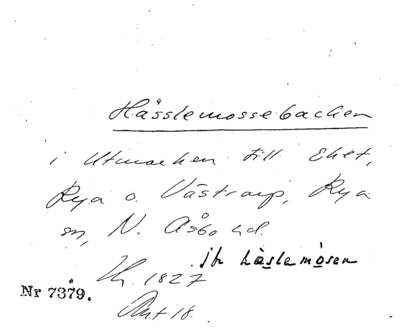 Hässlemossebacken
i Utmarken till Ehet,
Rya o. Västraip, Rya
sn, N. Åsbo hd.
jfr häslemosen
Nr 7379.
1827
Akt 18.